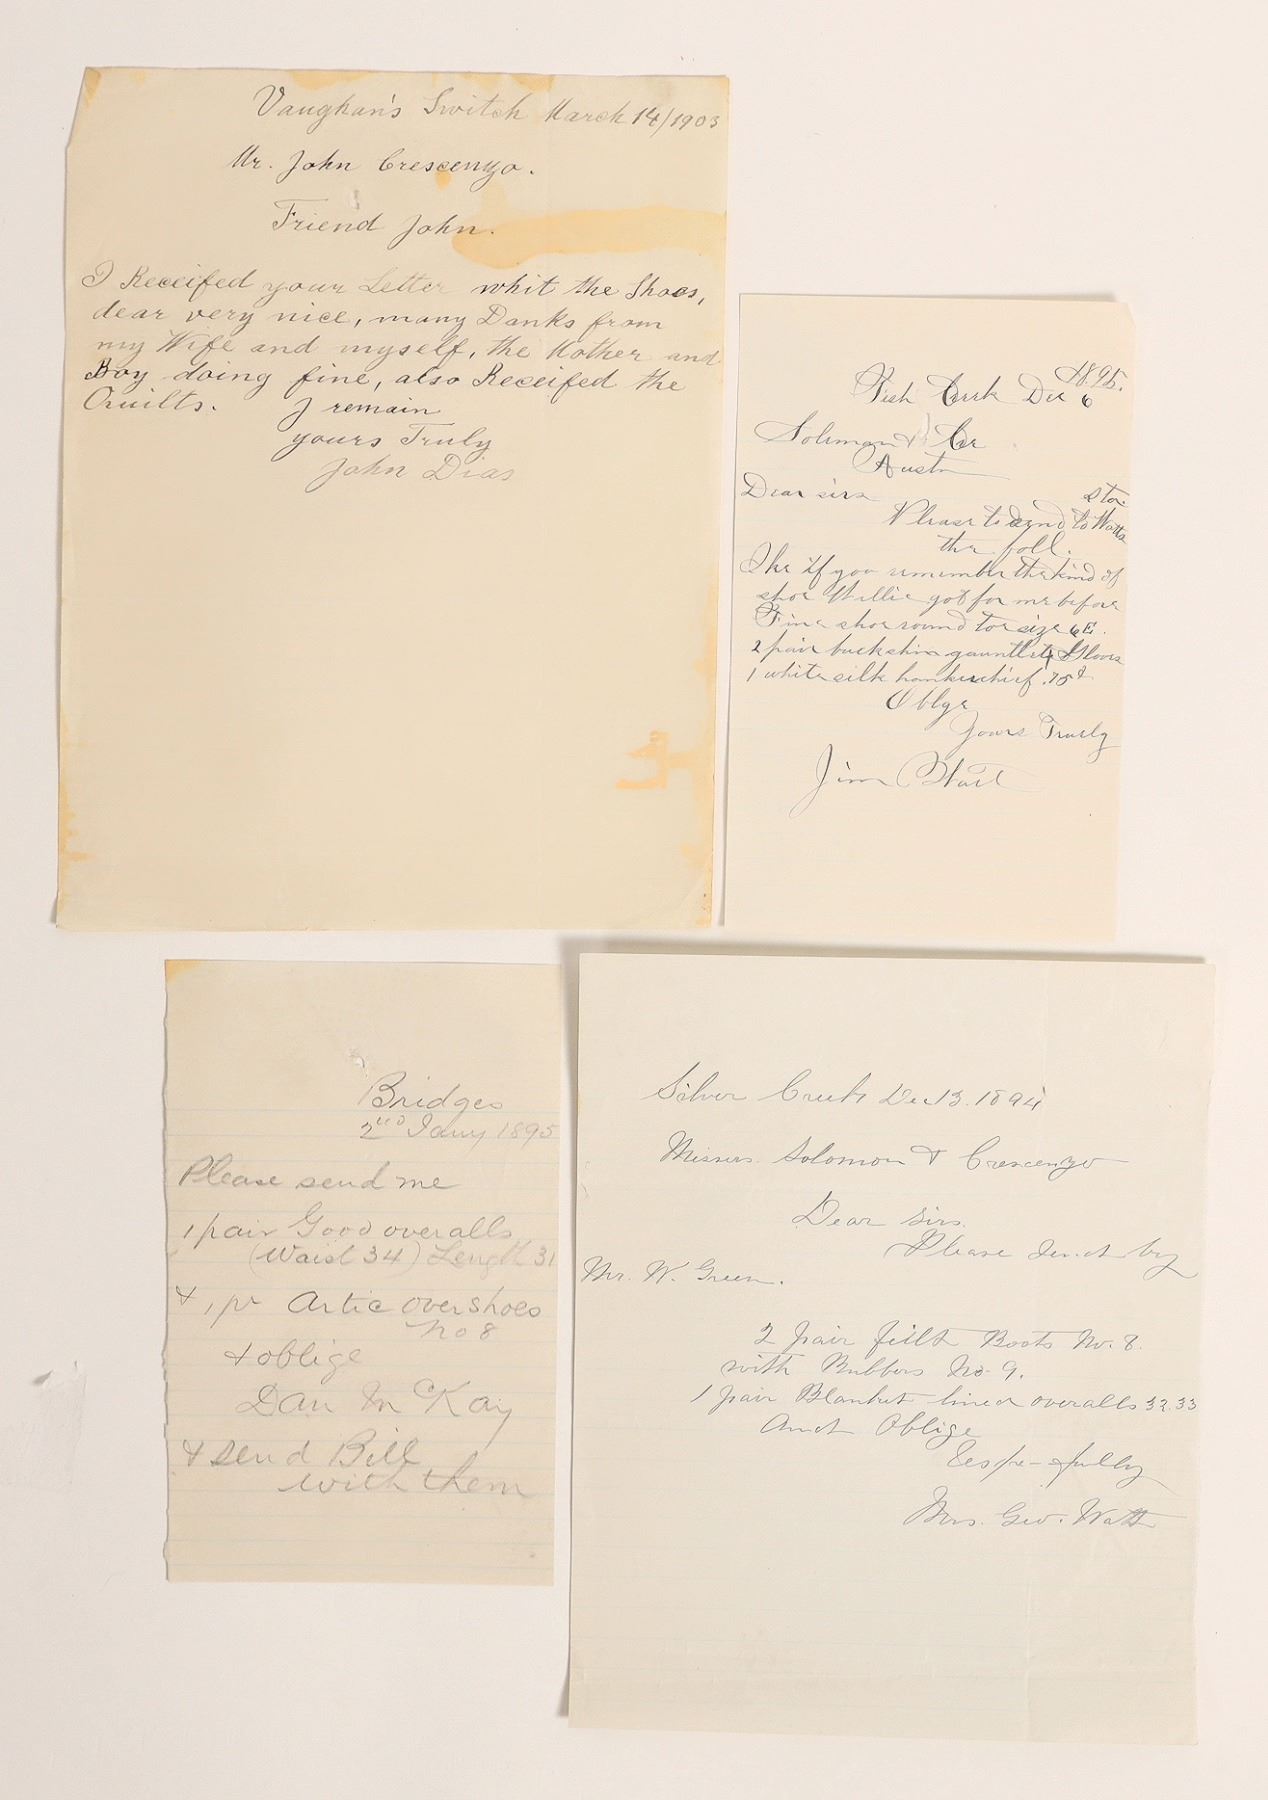 Vaughan's Switch March 14/1903
Mr. John Crescenzo.
Friend John.
I Receifed your Letter whit the Shoes,
dear very nice, many Danks from
my Wife and myself, the Mother and
Boy doing fine, also Receifed the
Quilts. I remain
yours Truly
John Dias
1895.
Fish Creek Dec 6
Soloman & Cr
Austin
Dear sirs
Please to send to Watts stor
the foll.
Ike if you remember the kind of
shoe Willie got for me before
Fine shoe round toe size 6 E.
2 pair buckskin gauntlet Gloves
1 white silk hankerchief .75¢
Oblge
Yours Truely
Jim
Bridges
2nd Jany 1895
Please send me
1 pair Good overalls
(Waist 34) Length 31
& 1 pr Artic overshoes
no 8
& oblige
Dan McKay
& send Bill
with them
Silver Creek Dec 13. 1894
Messrs. Solomon & Crescenzo
Dear Sirs.
Please send by
Mr. W. Green.
2 pair felt Boots No. 8.
with Rubbers No. 9.
1 pair Blanket lined overalls 32.33
And Oblige
Respe-tfully
Mrs. Geo. Watt